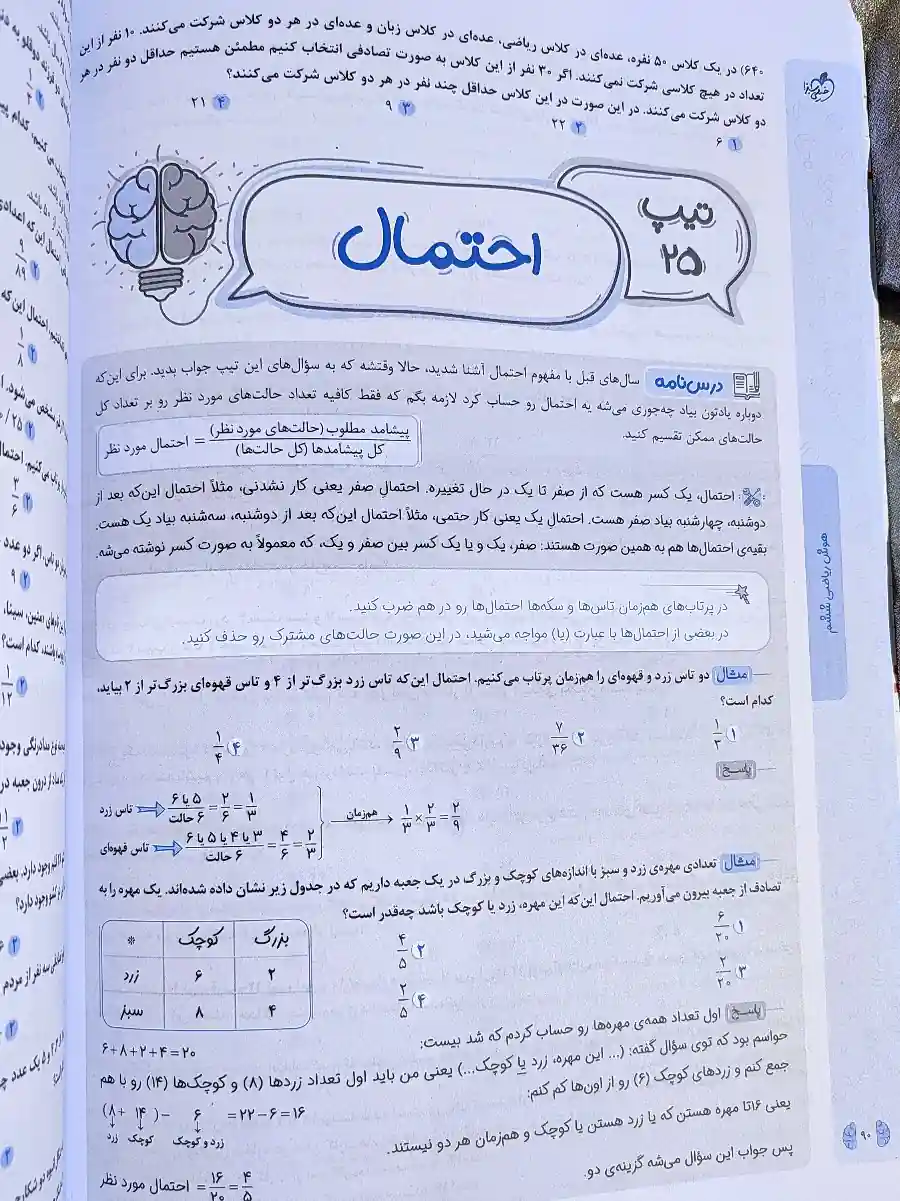 ۶۴۰) در یک کلاس ۵۰ نفره، عده‌ای در کلاس ریاضی، عده‌ای در کلاس زبان و عده‌ای در هر دو کلاس شرکت می‌کنند. ۱۰ نفر از این
تعداد در هیچ کلاسی شرکت نمی‌کنند. اگر ۳۰ نفر از این کلاس به صورت تصادفی انتخاب کنیم مطمئن هستیم حداقل دو نفر در هر
دو کلاس شرکت می‌کنند. در این صورت در این کلاس حداقل چند نفر در هر دو کلاس شرکت می‌کنند؟
۱) ۶ ۲) ۲۲ ۳) ۹ ۴) ۲۱
تیپ
۲۵
احتمال
درس‌نامه سال‌های قبل با مفهوم احتمال آشنا شدید، حالا وقتشه که به سؤال‌های این تیپ جواب بدید. برای این‌که
دوباره یادتون بیاد چه‌جوری می‌شه یه احتمال رو حساب کرد لازمه بگم که فقط کافیه تعداد حالت‌های مورد نظر رو بر تعداد کل
حالت‌های ممکن تقسیم کنید.
احتمال مورد نظر = پیشامد مطلوب (حالت‌های مورد نظر) / کل پیشامدها (کل حالت‌ها)
: احتمال، یک کسر هست که از صفر تا یک در حال تغییره. احتمالِ صفر یعنی کار نشدنی، مثلاً احتمال این‌که بعد از
دوشنبه، چهارشنبه بیاد صفر هست. احتمالِ یک یعنی کار حتمی، مثلاً احتمال این‌که بعد از دوشنبه، سه‌شنبه بیاد یک هست.
بقیه‌ی احتمال‌ها هم به همین صورت هستند: صفر، یک و یا یک کسر بین صفر و یک، که معمولاً به صورت کسر نوشته می‌شه.
در پرتاب‌های هم‌زمان تاس‌ها و سکه‌ها احتمال‌ها رو در هم ضرب کنید.
در بعضی از احتمال‌ها با عبارت (یا) مواجه می‌شید، در این صورت حالت‌های مشترک رو حذف کنید.
مثال دو تاس زرد و قهوه‌ای را هم‌زمان پرتاب می‌کنیم. احتمال این‌که تاس زرد بزرگ‌تر از ۴ و تاس قهوه‌ای بزرگ‌تر از ۲ بیاید،
کدام است؟
۱) ۱/۲ ۲) ۷/۳۶ ۳) ۲/۹ ۴) ۱/۴
پاسخ
تاس زرد ⇒ ۵ یا ۶ / ۶ حالت = ۲/۶ = ۱/۳
تاس قهوه‌ای ⇒ ۳ یا ۴ یا ۵ یا ۶ / ۶ حالت = ۴/۶ = ۲/۳
هم‌زمان → ۱/۳ × ۲/۳ = ۲/۹
مثال تعدادی مهره‌ی زرد و سبز با اندازه‌های کوچک و بزرگ در یک جعبه داریم که در جدول زیر نشان داده شده‌اند. یک مهره را به
تصادف از جعبه بیرون می‌آوریم. احتمال این‌که این مهره، زرد یا کوچک باشد چه‌قدر است؟
۱) ۶/۲۰ ۲) ۴/۵
۳) ۲/۲۰ ۴) ۲/۵
بزرگ کوچک *
۲ ۶ زرد
۴ ۸ سبز
پاسخ اول تعداد همه‌ی مهره‌ها رو حساب کردم که شد بیست:
۶+۸+۲+۴=۲۰
حواسم بود که توی سؤال گفته: (... این مهره، زرد یا کوچک...) یعنی من باید اول تعداد زردها (۸) و کوچک‌ها (۱۴) رو با هم
جمع کنم و زردهای کوچک (۶) رو از اون‌ها کم کنم:
(۸+ ۱۴) − ۶ = ۲۲−۶=۱۶
زرد کوچک زرد و کوچک
یعنی ۱۶تا مهره هستن که یا زرد هستن یا کوچک و هم‌زمان هر دو نیستند.
پس جواب این سؤال می‌شه گزینه‌ی دو.
احتمال مورد نظر = ۱۶/۲۰ = ۴/۵
هوش ریاضی ششم
۹۰